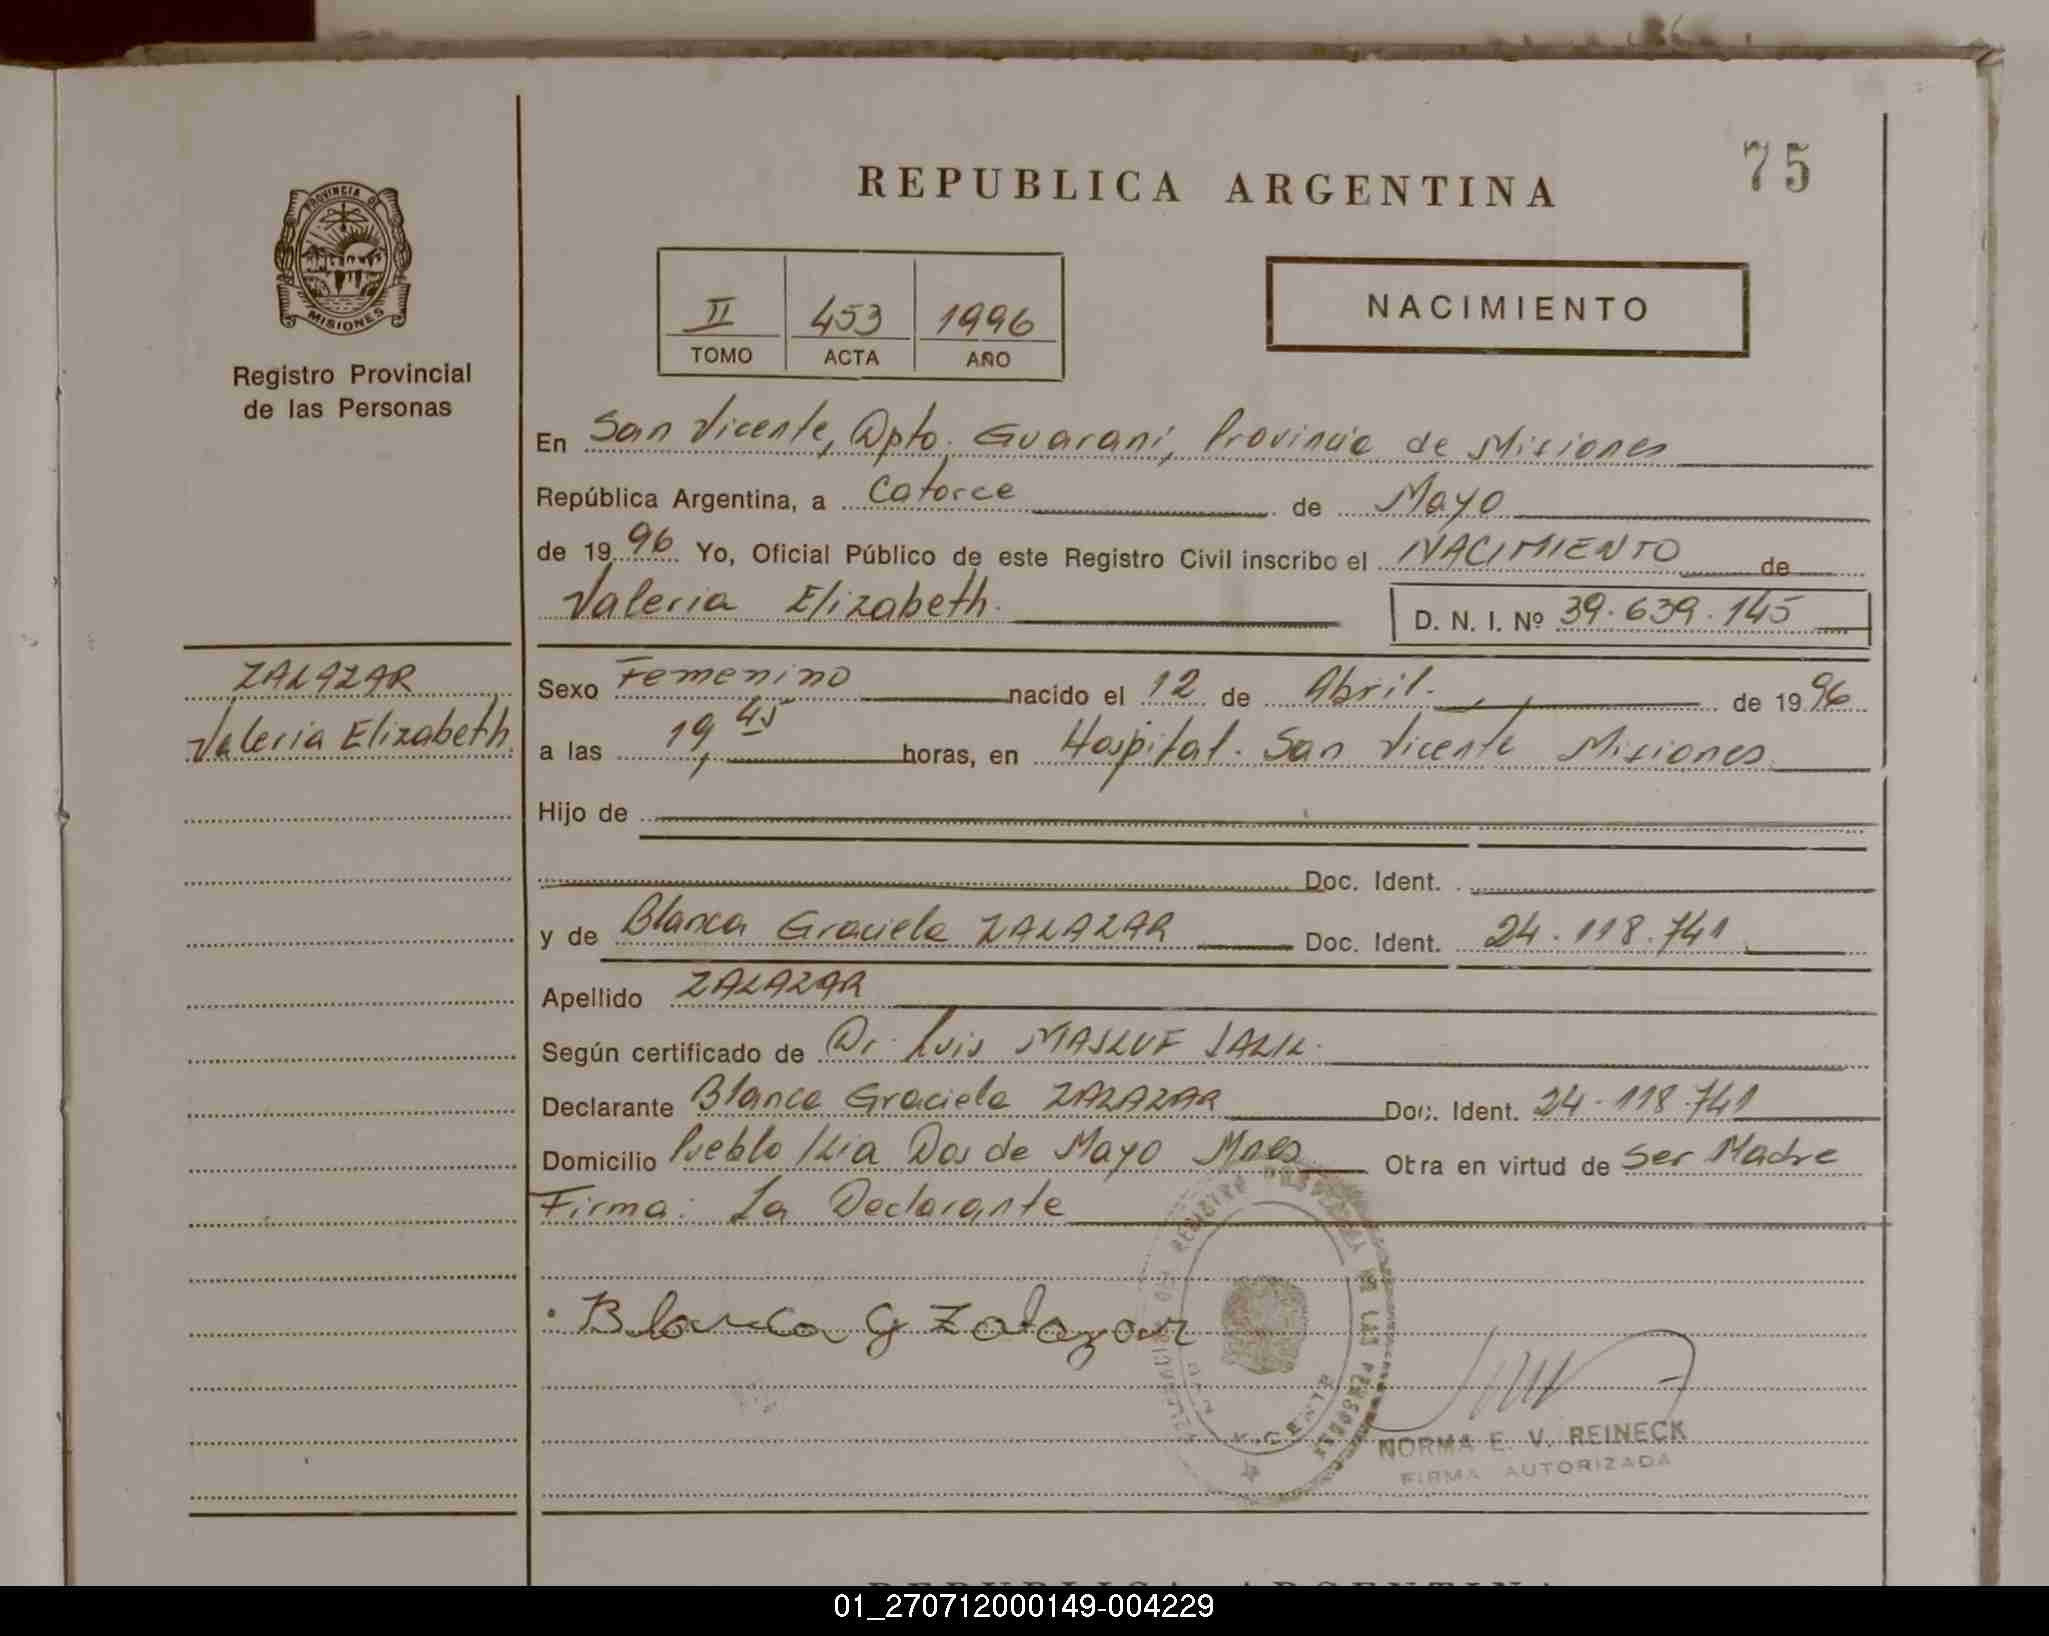 75
REPUBLICA ARGENTINA
PROVINCIA DE
MISIONES
Registro Provincial
de las Personas
II 453 1996
TOMO ACTA AÑO
NACIMIENTO
En San Vicente, Dpto. Guaraní, Provincia de Misiones
República Argentina, a Catorce de Mayo
de 1996 Yo, Oficial Público de este Registro Civil inscribo el NACIMIENTO de
Valeria Elizabeth. D. N. I. Nº 39.639.145
ZALAZAR
Valeria Elizabeth.
Sexo Femenino nacido el 12 de Abril. de 1996
a las 19,45 horas, en Hospital. San Vicente Misiones
Hijo de
Doc. Ident.
y de Blanca Graciela ZALAZAR Doc. Ident. 24.118.741
Apellido ZALAZAR
Según certificado de Dr. Luis MASLUF
Declarante Blanca Graciela ZALAZAR Doc. Ident. 24.118.741
Domicilio Pueblo Dos de Mayo Mnes Otra en virtud de Ser Madre
Firma: La Declarante
Blanca G Zalazar
REGISTRO PROVINCIAL DE LAS PERSONAS
NORMA E. V. REINECK
FIRMA AUTORIZADA
REPUBLICA ARGENTINA
01_270712000149-004229